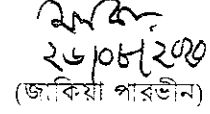 ২৬/০৮/২০২০
(জাকিয়া পারভীন)